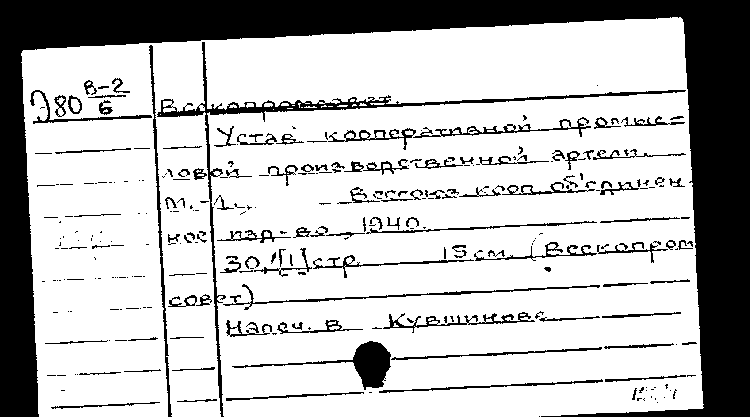 Э80 В-2/6
Всекопромсовет.
Устав кооперативной промыс=
ловой производственной артели.
М.-Л., Всесоюз. кооп. об'единен-
ное изд-во, 1940.
30, [1] стр. 15 см. (Всекопром
совет)
Напеч. в Кувшинове